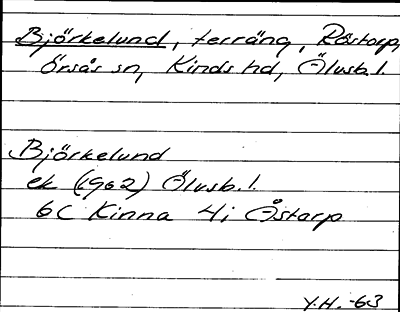 Björkelund, terräng, Röstorp,
Örsås sn, Kinds hd, Älvsb.l.
Björkelund
ek (1962) Älvsb.l.
6C Kinna 4i Åstarp
Y.H. -63